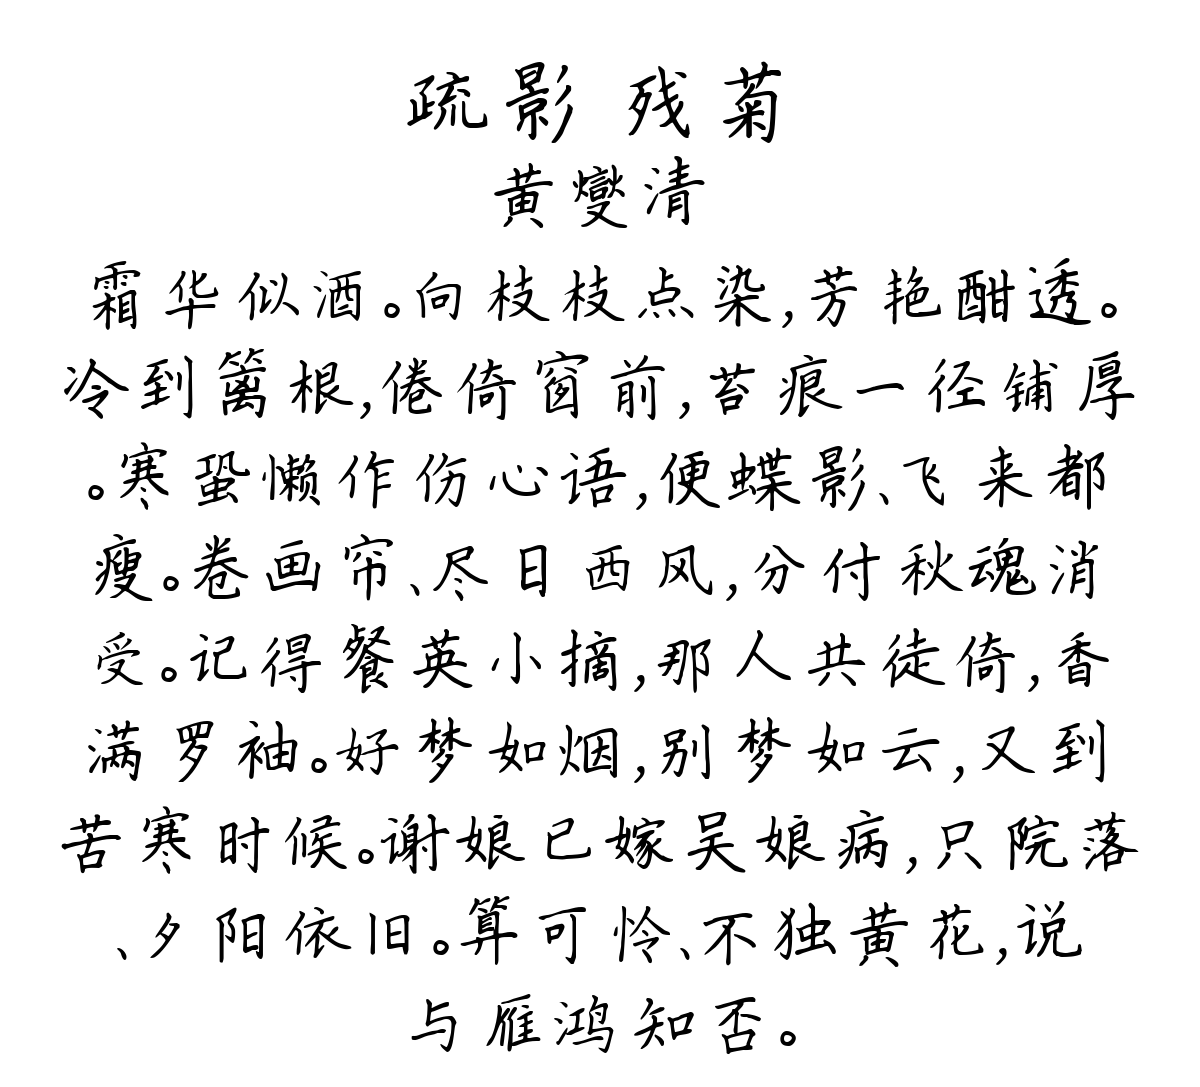 疏影 残菊
黄燮清
霜华似酒。向枝枝点染,芳艳酣透。
冷到篱根,倦倚窗前,苔痕一径铺厚
。寒蛩懒作伤心语,便蝶影、飞来都
瘦。卷画帘、尽日西风,分付秋魂消
受。记得餐英小摘,那人共徒倚,香
满罗袖。好梦如烟,别梦如云,又到
苦寒时候。谢娘已嫁吴娘病,只院落
、夕阳依旧。算可怜、不独黄花,说
与雁鸿知否。